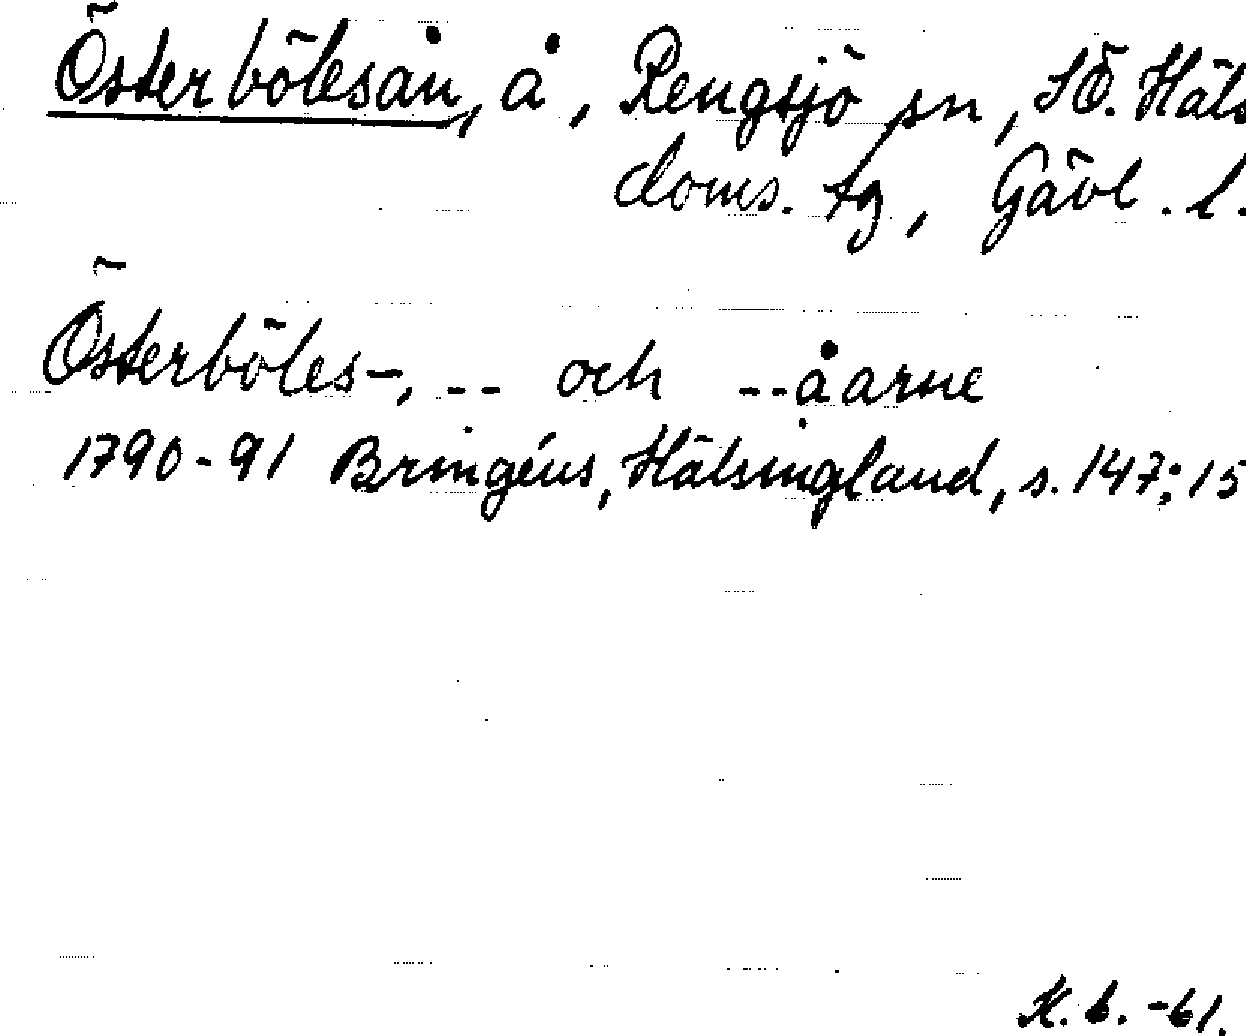 Österbölesån, å, Rengsjö sn, SÖ. Häls
doms. tg, Gävl. l.
Österböles-, -- och --åarne
1790-91 Bringéus, Hälsingland, s. 147; 15
K. b. -61.